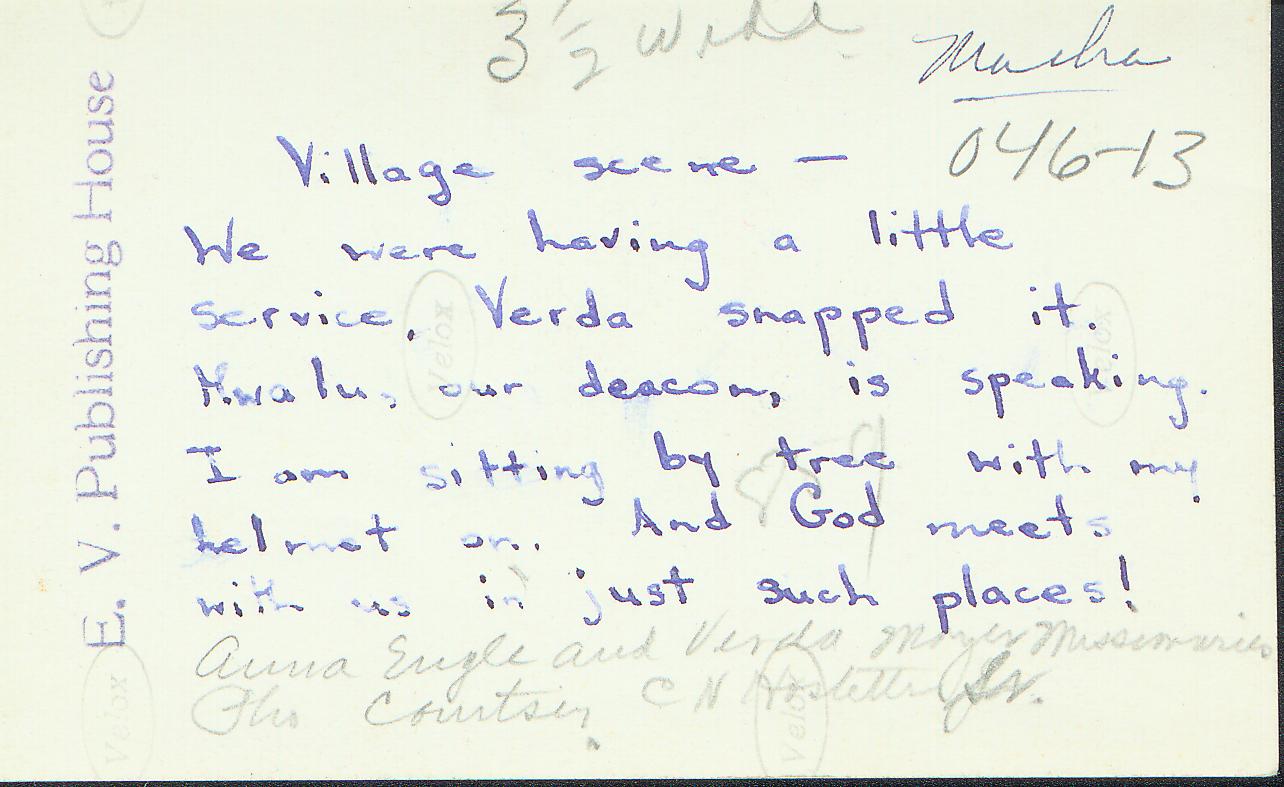 3 1/2 wide
Macha
046-13
Village scene —
We were having a little
service. Verda snapped it.
Mwalu, our deacon, is speaking.
I am sitting by tree with my
helmet on. And God meets
with us in just such places!
Anna Engle and Verda Moyer Missionaries
Pho Courtsey C N Hostetter Sr.
E. V. Publishing House
Velox
Velox
Velox
Velox